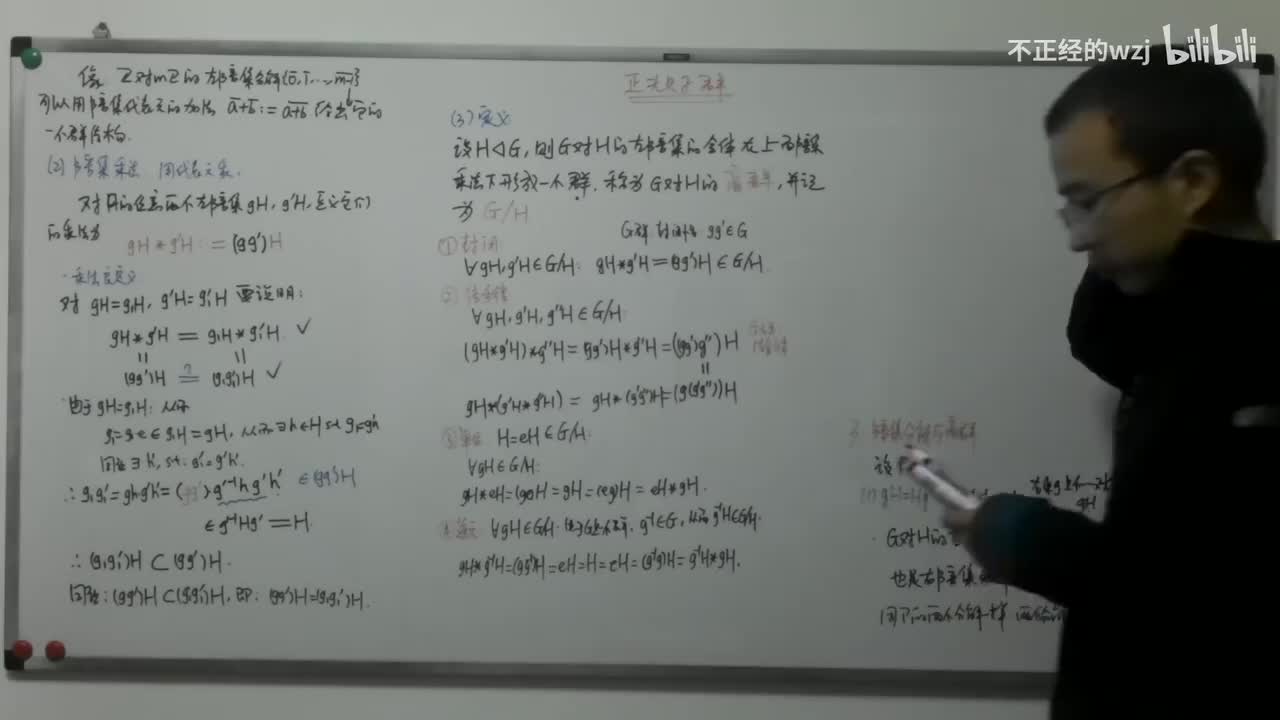 不正经的wzj bilibili
正规子群
像 Z对mZ的左陪集分解{0̅,1̅,…,m-1}
可以用陪集代表元的加法 a̅+b̅:=a+b 给出它的
一个群结构.
(2) 陪集乘法 用代表元乘.
对H的任意两个左陪集gH, g'H, 定义它们
的乘法为 gH*g'H:=(gg')H
·乘法良定义
对 gH=g₁H, g'H=g₁'H 要说明:
gH*g'H = g₁H*g₁'H ✓
(gg')H ?= (g₁g₁')H ✓
由于 gH=g₁H, 从而
g₁=g₁e∈g₁H=gH, 从而∃h∈H s.t. g₁=gh
同理∃h', s.t. g₁'=g'h'.
∴ g₁g₁'=ghg'h'=(gg')g'⁻¹hg'h' ∈(gg')H
∈g'⁻¹Hg'=H
∴ (g₁g₁')H⊂(gg')H.
同理: (gg')H⊂(g₁g₁')H, 即: (gg')H=(g₁g₁')H.
(3) 定义
设H◁G, 则G对H的左陪集的全体在上部陪集
乘法下形成一个群, 称为G对H的商群, 并记
为 G/H
G群 封闭性 gg'∈G
①封闭
∀gH,g'H∈G/H: gH*g'H=(gg')H∈G/H.
②结合律
∀gH,g'H,g''H∈G/H
(gH*g'H)*g''H=(gg')H*g''H=((gg')g'')H
gH*(g'H*g''H) = gH*(g'g'')H=(g(g'g''))H
③单位 H=eH∈G/H:
∀gH∈G/H:
gH*eH=(ge)H=gH=(eg)H=eH*gH.
④逆元 ∀gH∈G/H. 由于G是群, g⁻¹∈G, 从而g⁻¹H∈G/H.
gH*g⁻¹H=(gg⁻¹)H=eH=H=eH=(g⁻¹g)H=g⁻¹H*gH.
3. 陪集分解与商群
设
(1) gH=Hg
G对H的
也是右陪集